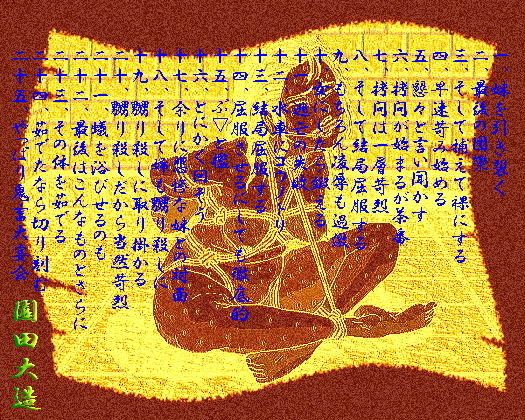 一、妹を引き裂く
二、最後の団欒
三、そして捕えて裸にする
四、早速苛み始める
五、懇々と言い聞かす
六、拷問が始まるが茶番
七、拷問は一層苛烈
八、そして結局屈服する
九、もちろん凌辱も過激
十、
十一、
十二、水車に
十三、結局屈服する
十四、屈服させるにしても徹底的
十五、
十六、とにかく回そう
十七、余りに悲惨な妹との対面
十八、そして姉も嬲り殺しに
十九、嬲り殺しに取り掛かる
二十、嬲り殺しだから当然苛烈
二十一、蝋を浴びせるのも
二十二、最後はこんなものとさらに
二十三、その体を茹でる
二十四、茹でたなら切り刻む
二十五、やっぱり
園田大造